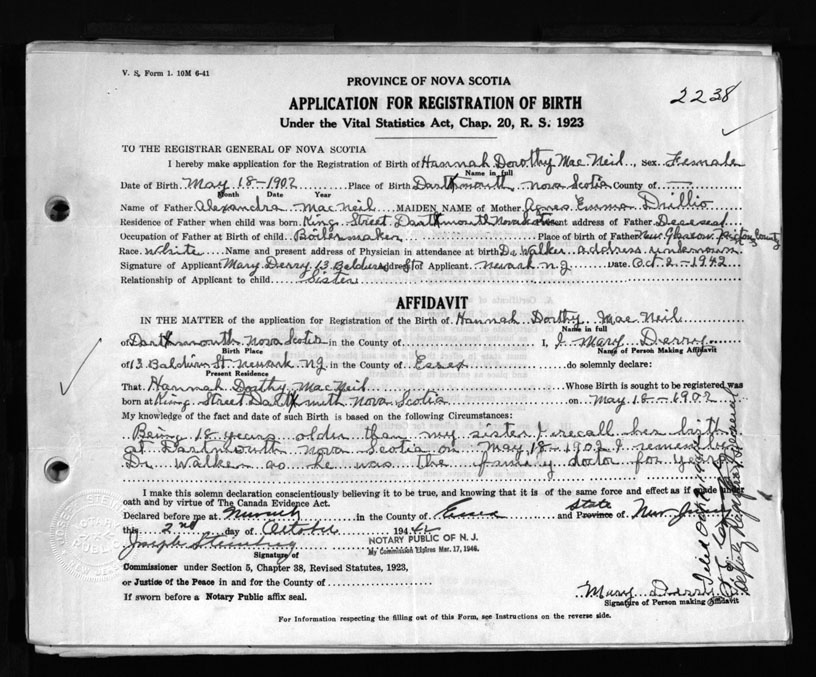 V. S. Form 1. 10M 6-41
2238
PROVINCE OF NOVA SCOTIA
APPLICATION FOR REGISTRATION OF BIRTH
Under the Vital Statistics Act, Chap. 20, R. S. 1923
TO THE REGISTRAR GENERAL OF NOVA SCOTIA
I hereby make application for the Registration of Birth of Hannah Dorothy Mac Neil, Sex Female
Name in full
Date of Birth May 18-1902 Place of Birth Dartmouth Nova Scotia County of
Month Date Year
Name of Father Alexandra MacNeil MAIDEN NAME of Mother Agnes Emma Drillio
Residence of Father when child was born King Street Dartmouth Nova Scotia present address of Father Deceased
Occupation of Father at Birth of child Boilermaker Place of birth of Father New Glasgow Pictou County
Race White Name and present address of Physician in attendance at birth Dr Walker address unknown
Signature of Applicant Mary Derry 13 Baldwin St Address of Applicant Newark N.J Date Oct 2-1942
Relationship of Applicant to child Sister
AFFIDAVIT
IN THE MATTER of the application for Registration of the Birth of Hannah Dorthy Mac Neil
Name in full
of Darthmouth Nova Scotia in the County of I, I Mary Derry
Birth Place Name of Person Making Affidavit
of 13 Baldwin St Newark NJ in the County of Essex do solemnly declare:
Present Residence
That Hannah Doathy MacNeil Whose Birth is sought to be registered was
born at King Street Dartmouth Nova Scotia on May 18-1902
My knowledge of the fact and date of such Birth is based on the following Circumstances:
Being 18 years older than my sister I recall her birth
at Dartmouth Nova Scotia on May 18-1902 I remember
Dr Walker as he was the family doctor for years
I make this solemn declaration conscientiously believing it to be true, and knowing that it is of the same force and effect as if made under
oath and by virtue of The Canada Evidence Act.
Declared before me at Newark in the County of Essex State and Province of New Jersey
this 2nd day of October 1942
NOTARY PUBLIC OF N. J.
My Commission Expires Mar. 17, 1946.
Joseph Steinberg
Signature of
Commissioner under Section 5, Chapter 38, Revised Statutes, 1923,
or Justice of the Peace in and for the County of
If sworn before a Notary Public affix seal.
Mary Derry
Signature of Person making Affidavit
For Information respecting the filling out of this Form, see Instructions on the reverse side.
Deputy Registrar General